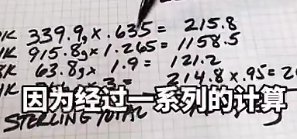 K 339.9g x .635 = 215.8
K 915.8g x 1.265 = 1158.5
K 63.8g x 1.9 = 121.2
214.8 x .95 = 2
因为经过一系列的计算
STERLING TOTAL